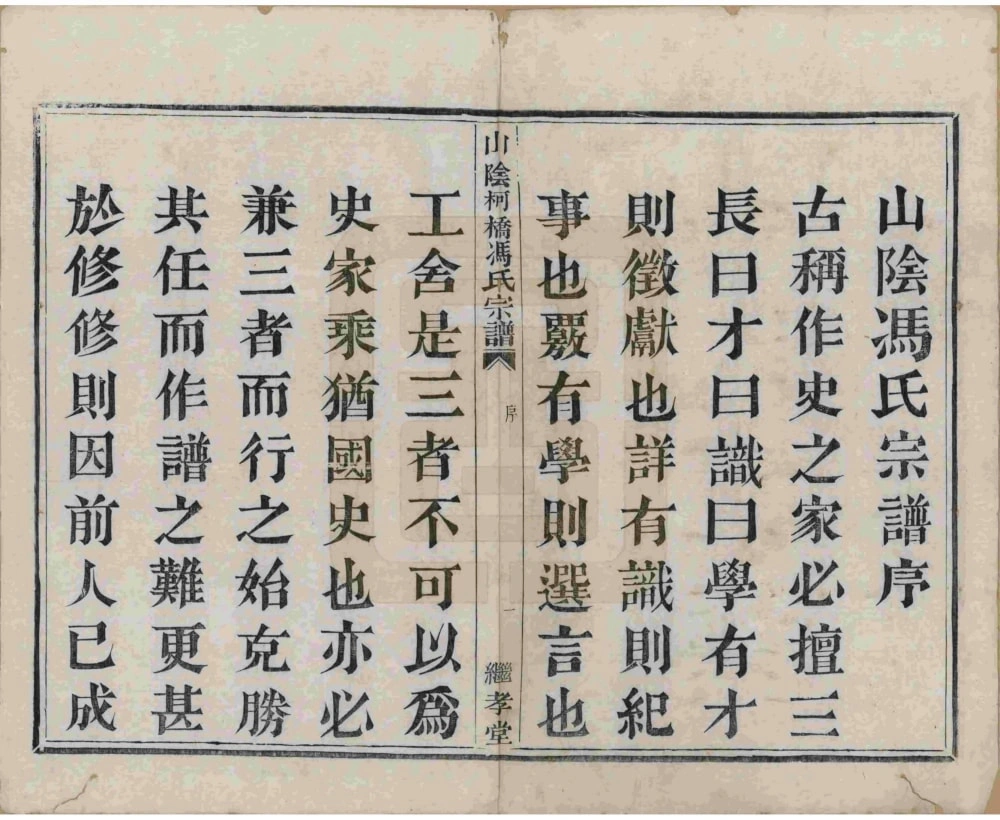 山陰馮氏宗譜序
古稱作史之家必擅三
長曰才曰識曰學有才
則徵獻也詳有識則紀
事也覈有學則選言也
山陰柯橋馮氏宗譜
序
一
繼孝堂
工舍是三者不可以爲
史家乘猶國史也亦必
兼三者而行之始克勝
其任而作譜之難更甚
於修修則因前人已成